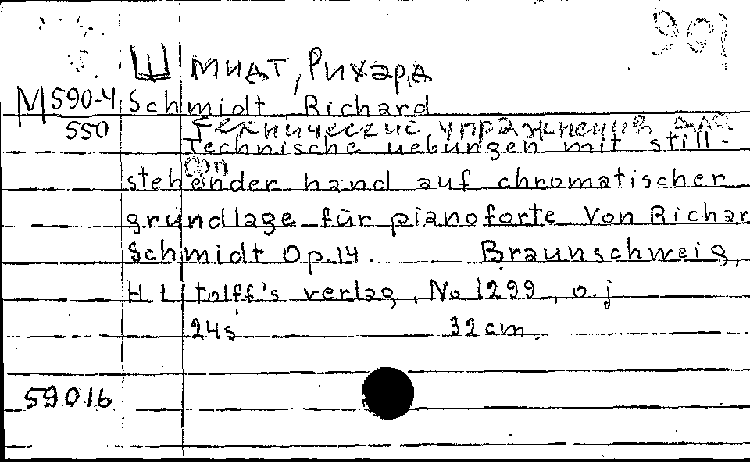 901
Шмидт, Рихард
M 590-4
550
Schmidt Richard
Технические упражнения для
Technische uebungen mit still-
stehender hand auf chromatischer
grundlage für pianoforte Von Richar
Schmidt Op.14. Braunschweig,
H Litolff's verlag, No 1299, o.j
24s 32cm.
59016